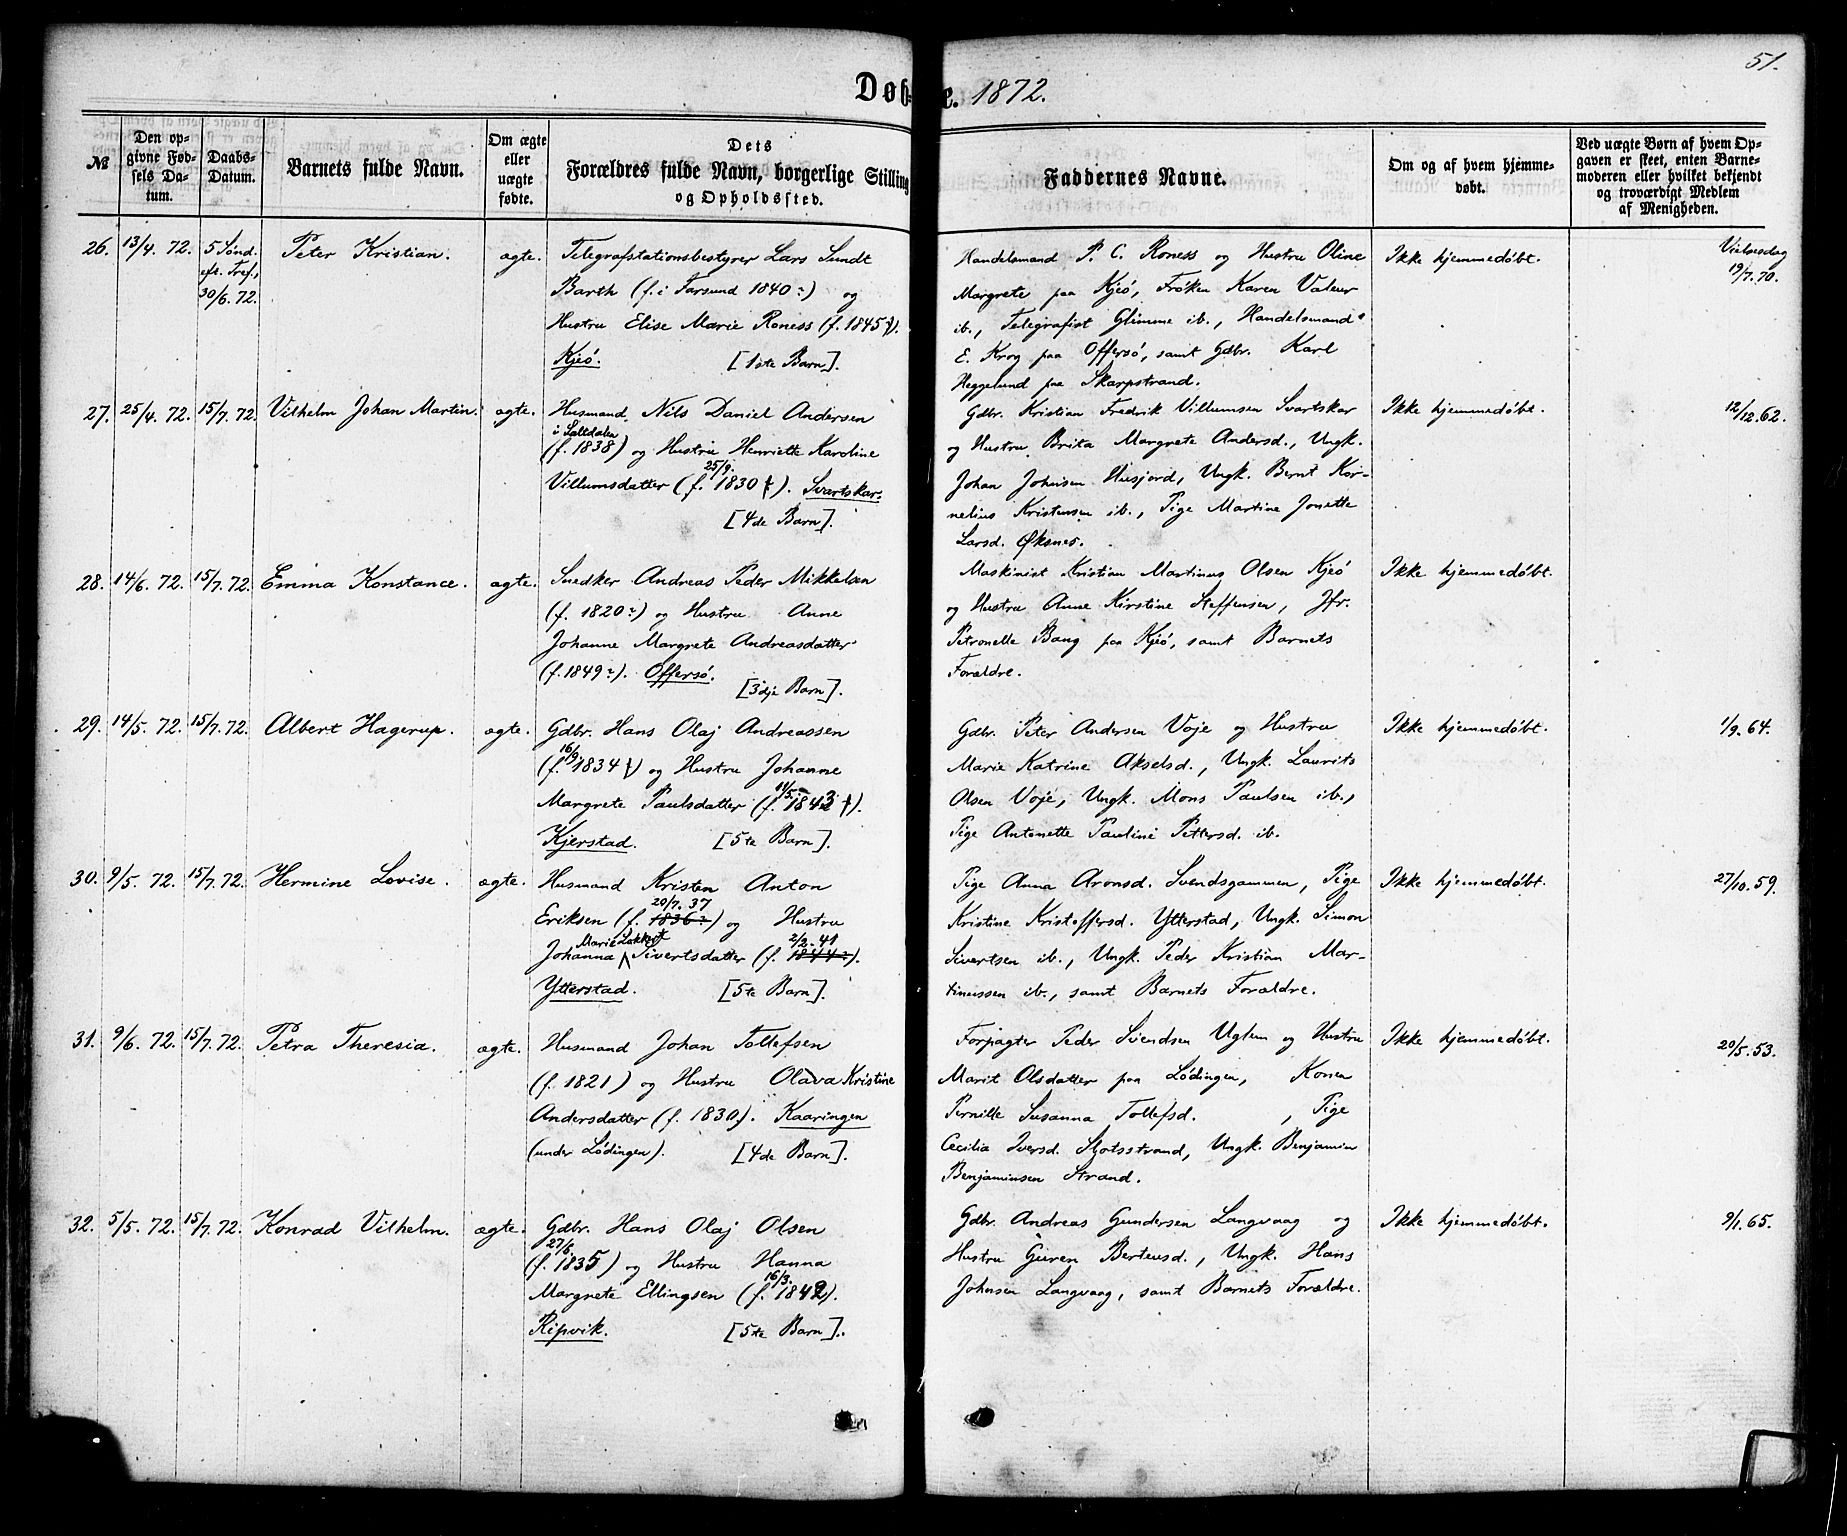 51.
Døbte. 1872.
№
Den opgivne Fødsels Datum.
Daabs-Datum.
Barnets fulde Navn.
Om ægte eller uægte fødte.
Dets Forældres fulde Navn, borgerlige Stilling og Opholdssted.
Faddernes Navne.
Om og af hvem hjemmedøbt.
Ved uægte Børn af hvem Opgaven er skeet, enten Barnemoderen eller hvilket bekjendt og troværdigt Medlem af Menigheden.
26. 13/4. 72. 5 Sønd. eft. Tref., 30/6. 72. Peter Kristian. ægte.
Telegrafstationsbestyrer Lars Sundt
Barth (f. i Farsund 1840 ?) og
Hustru Elise Marie Roness (f. 1845).
Kjeø. [1ste Barn].
Handelsmand P. C. Roness og Hustru Oline
Margrete paa Kjeø, Frøken Karen Valeur
ib., Telegrafist Glimme ib., Handelsmand
E. Krog paa Offersø, samt Gdbr. Karl
Heggelund paa Skarpstrand.
Ikke hjemmedøbt.
Vielsesdag
19/7. 70.
27. 25/4. 72. 15/7. 72. Vilhelm Johan Martin. ægte.
Husmand Nils Daniel Andersen
i Saltdalen
(f. 1838) og Hustru Henriette Karoline
25/9.
Villumsdatter (f. 1830). Svartskar.
[4de Barn].
Gdbr. Kristian Fredrik Villumsen Svartskar
og Hustru Brita Margrete Andersd., Ungk.
Johan Johnsen Husjord, Ungk. Bernt Kor-
nelius Kristensen ib., Pige Martine Jonette
Larsd. Øksnes.
Ikke hjemmedøbt.
12/12. 62.
28. 14/6. 72. 15/7. 72. Emma Konstance. ægte.
Snedker Andreas Peder Mikkelsen
(f. 1820 ?) og Hustru Anne
Johanne Margrete Andreasdatter
(f. 1849 ?). Offersø.
[3dje Barn].
Maskinist Kristian Martinus Olsen Kjeø
og Hustru Anne Kirstine Steffensen, Jfr.
Petronelle Bang paa Kjeø, samt Barnets
Forældre.
Ikke hjemmedøbt.
29. 14/5. 72. 15/7. 72. Albert Hagerup. ægte.
Gdbr. Hans Olaj Andreassen
16/9.
(f. 1834) og Hustru Johanne
11/5.
Margrete Paulsdatter (f. 1843).
Kjerstad. [5te Barn].
Gdbr. Peter Andersen Voje og Hustru
Marie Katrine Akselsd., Ungk. Laurits
Olsen Voje, Ungk. Mons Paulsen ib.,
Pige Antonette Pauline Pettersd. ib.
Ikke hjemmedøbt.
1/9. 64.
30. 9/5. 72. 15/7. 72. Hermine Lovise. ægte.
Husmand Kristen Anton
20/7. 37
Eriksen (f. 1836 ?) og Hustru
2/2. 41
Johanna Sivertsdatter (f. 1844 ?).
Ytterstad. [5te Barn].
Pige Anna Aronsd. Svendsgammen, Pige
Kristine Kristoffersd. Ytterstad, Ungk. Simon
Sivertsen ib., Ungk. Peder Kristian Mar-
tinussen ib., samt Barnets Forældre.
Ikke hjemmedøbt.
27/10. 59.
31. 9/6. 72. 15/7. 72. Petra Theresia. ægte.
Husmand Johan Tollefsen
(f. 1821) og Hustru Olava Kristine
Andersdatter (f. 1830). Kaaringen
(under Lødingen). [4de Barn].
Forpagter Peder Svendsen Uglem og Hustru
Marit Olsdatter paa Lødingen, Konen
Pernille Susanna Tollefsd. , Pige
Cecilia Iversd. Slotsstrand, Ungk. Benjamin
Benjaminsen Strand.
Ikke hjemmedøbt.
20/5. 53.
32. 5/5. 72. 15/7. 72. Konrad Vilhelm. ægte.
Gdbr. Hans Olaj Olsen
27/6.
(f. 1835) og Hustru Hanna
16/3.
Margrete Ellingsen (f. 1842).
Ripvik. [5te Barn].
Gdbr. Andreas Gundersen Langvaag og
Hustru Guren Berteusd., Ungk. Hans
Johnsen Langvaag, samt Barnets Forældre.
Ikke hjemmedøbt.
9/1. 65.